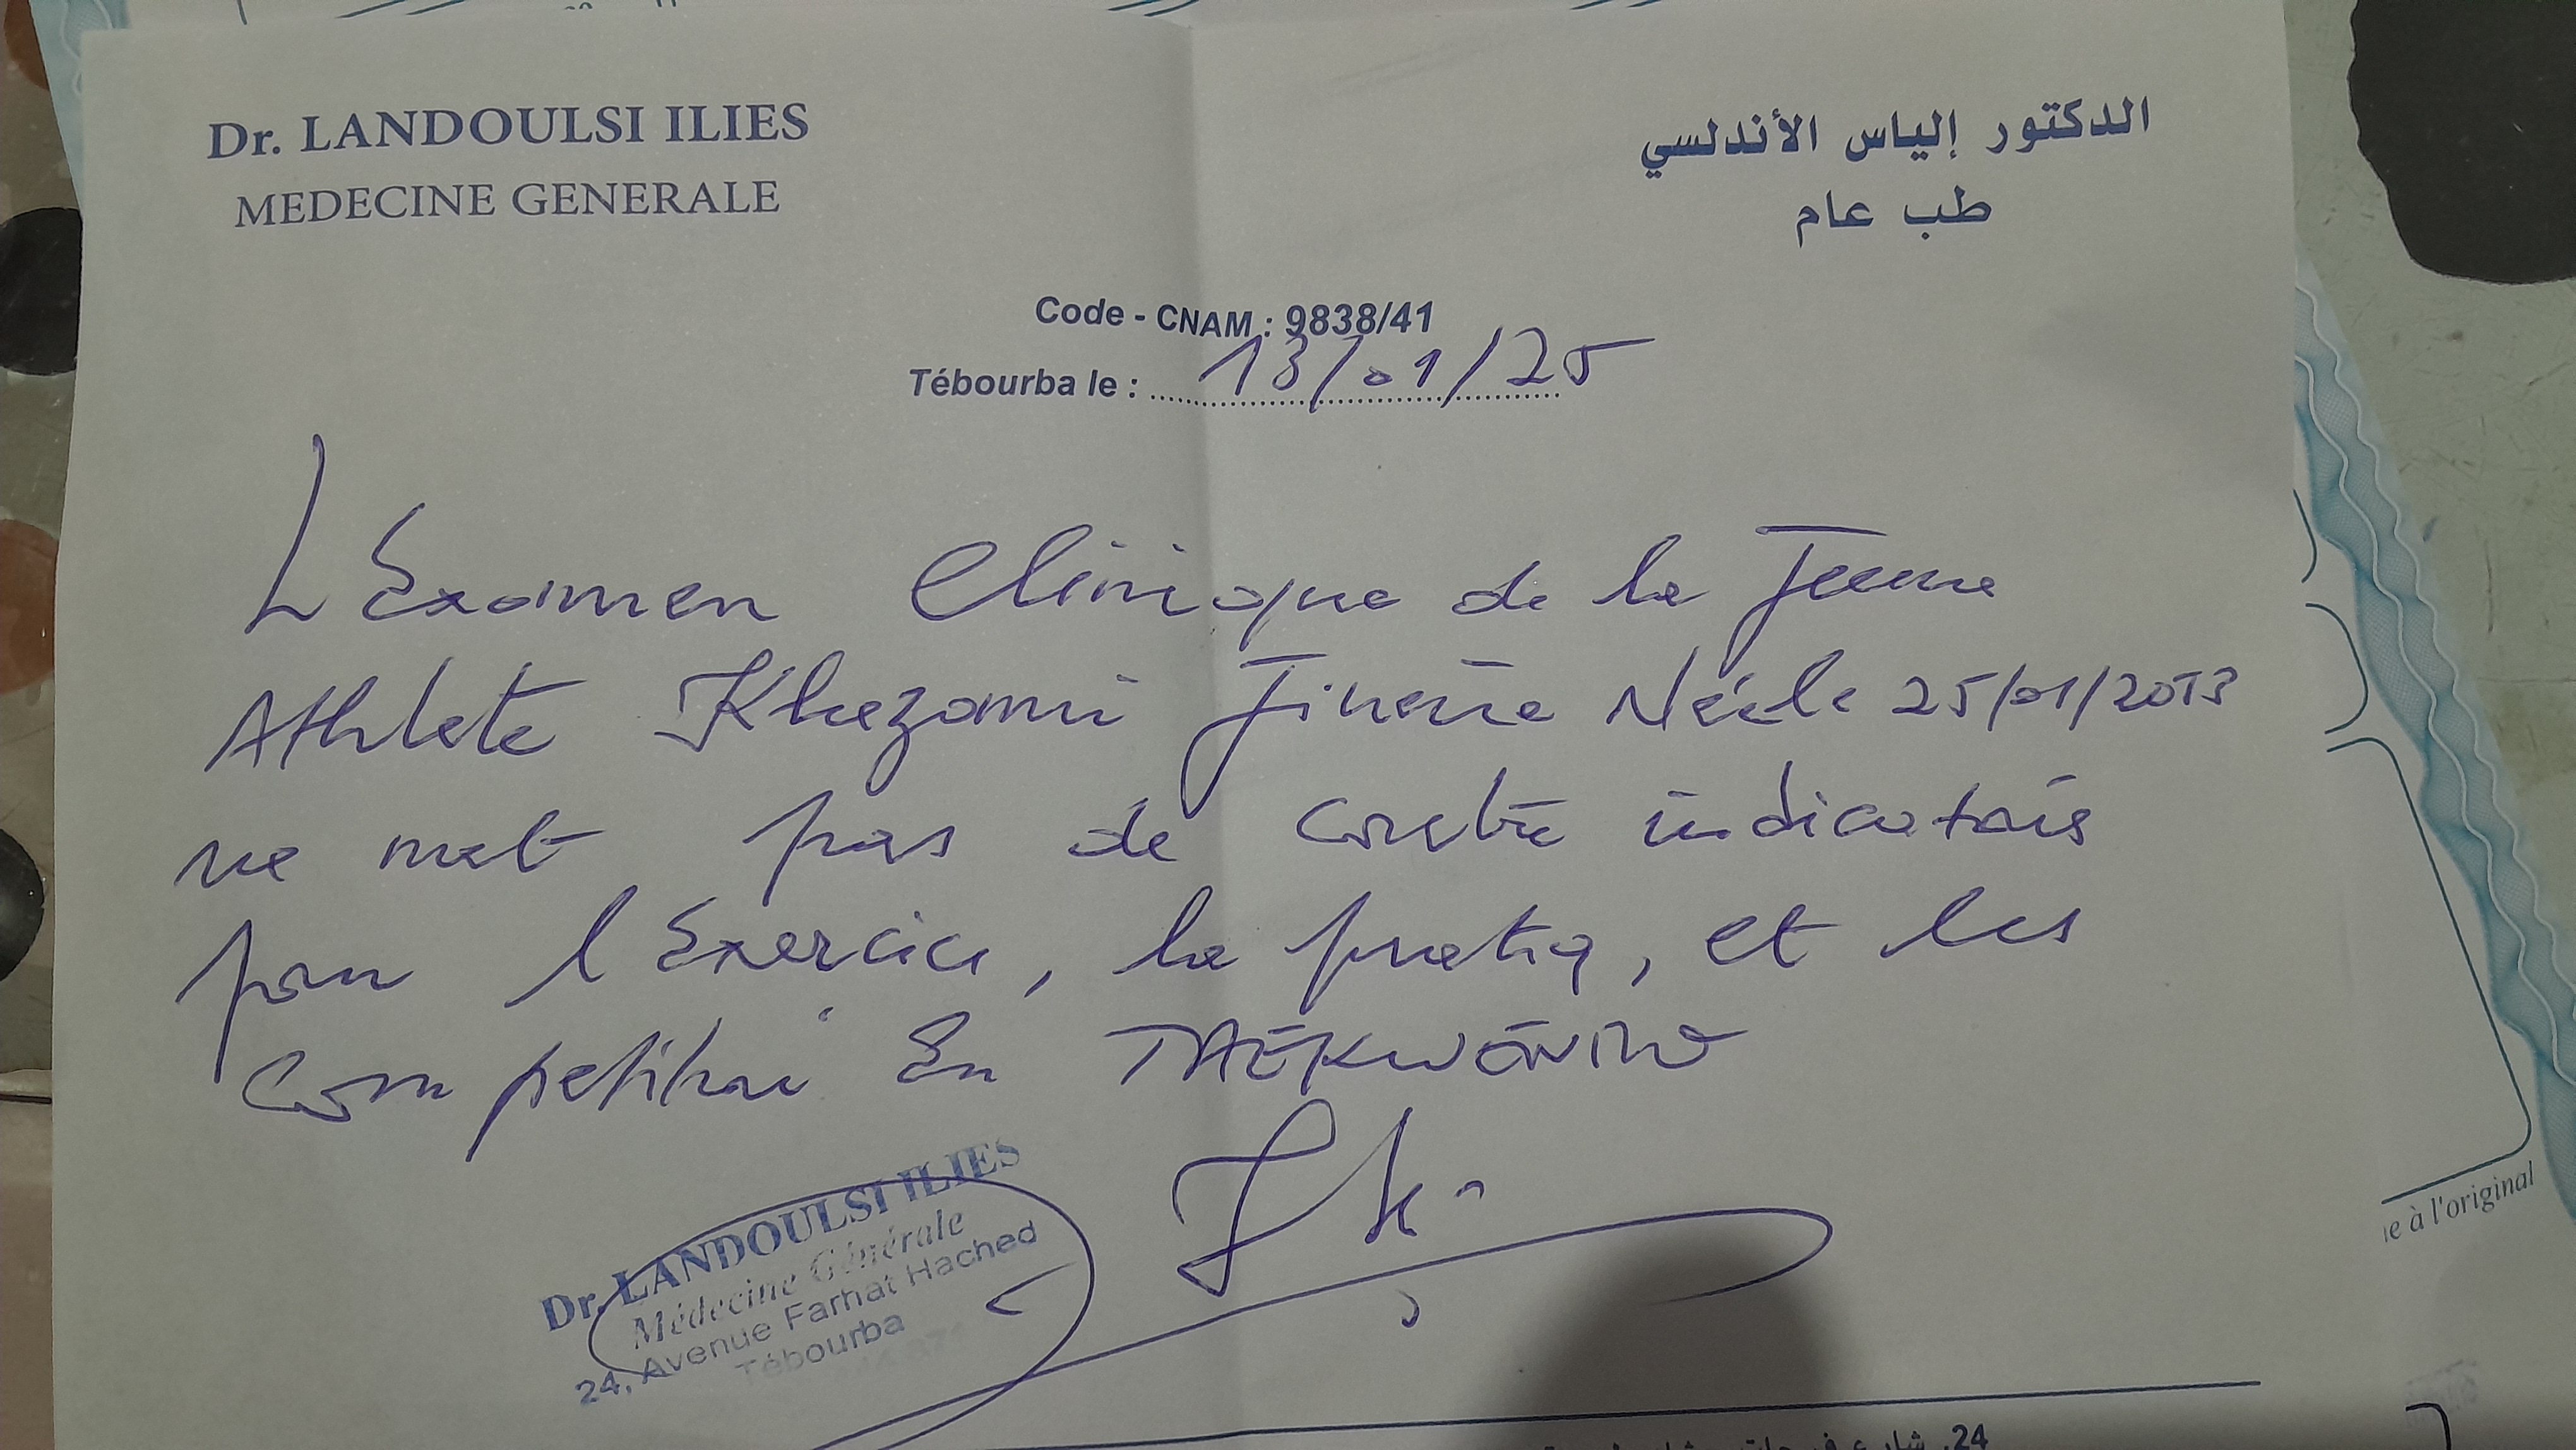 Dr. LANDOULSI ILIES
MEDECINE GENERALE
الدكتور إلياس الأندلسي
طب عام
Code - CNAM : 9838/41
Tébourba le : 13/01/25
L'Examen Clinique de la Jeune
Athlete Khezami Née le 25/01/2013
ne met pas de contre indications
pour l'Exercice, la pratiq, et les
Competition En TAEKWONDO
Dr. LANDOULSI ILIES
Médecine Générale
24, Avenue Farhat Hached
Tébourba
ie à l'original
24, شارع فرحات